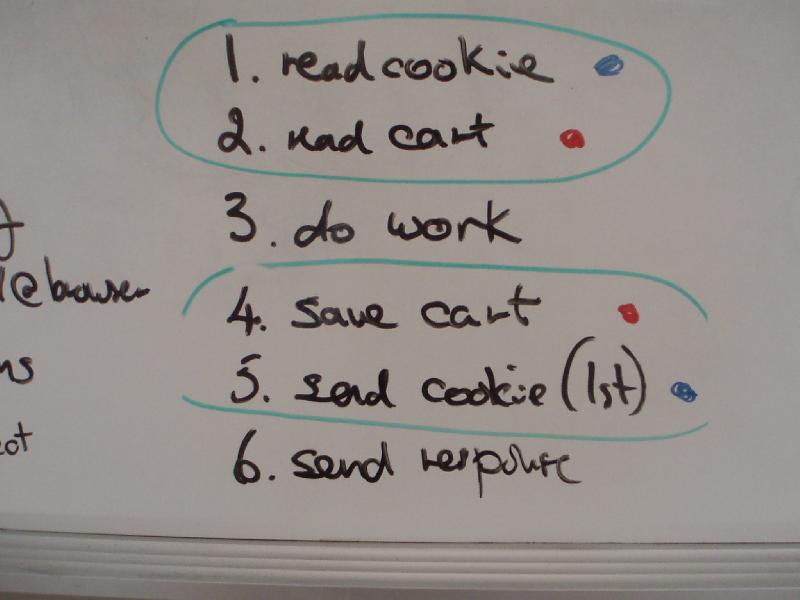 1. read cookie
2. read cart
3. do work
@browser
4. save cart
5. send cookie (1st)
6. send response